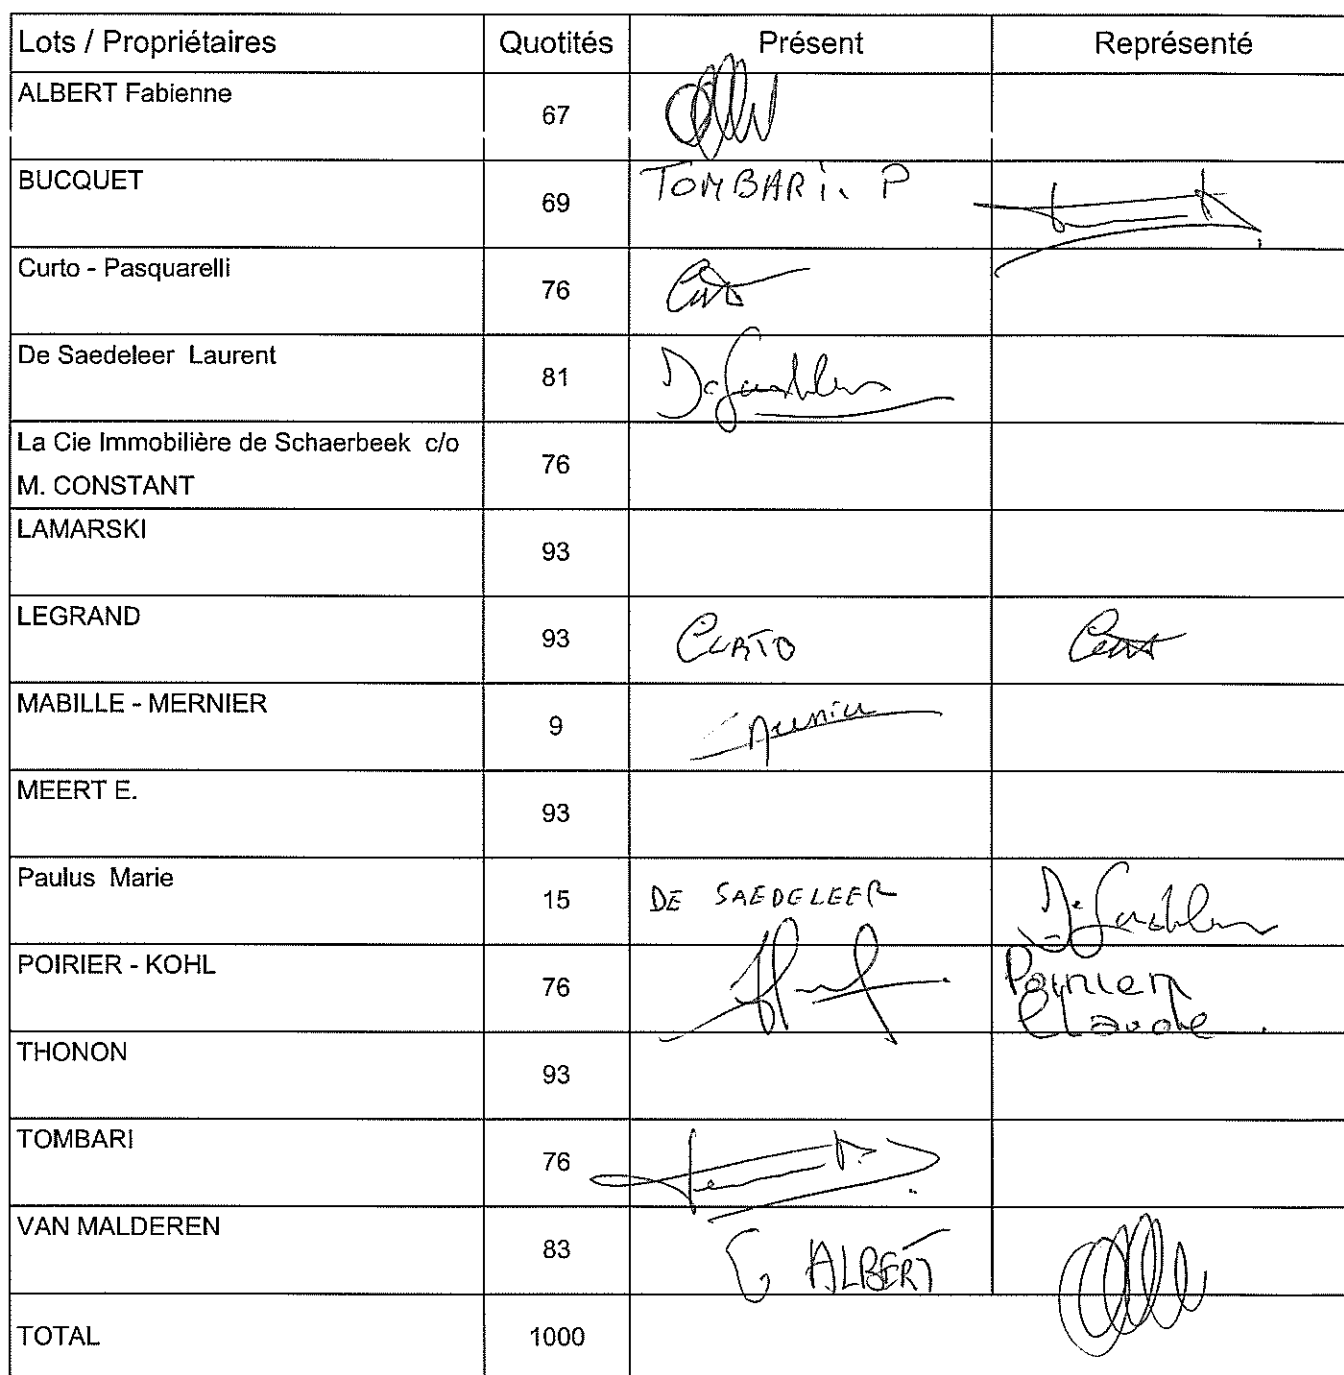 Lots / Propriétaires Quotités Présent Représenté
ALBERT Fabienne 67
BUCQUET 69 TOMBARI. P
Curto - Pasquarelli 76 Curto
De Saedeleer Laurent 81 De Saedeleer
La Cie Immobilière de Schaerbeek c/o
M. CONSTANT 76
LAMARSKI 93
LEGRAND 93 CURTO
MABILLE - MERNIER 9 Mernier
MEERT E. 93
Paulus Marie 15 DE SAEDELEER De Saedeleer
POIRIER - KOHL 76 Poirier
Claude.
THONON 93
TOMBARI 76
VAN MALDEREN 83 ALBERT
TOTAL 1000